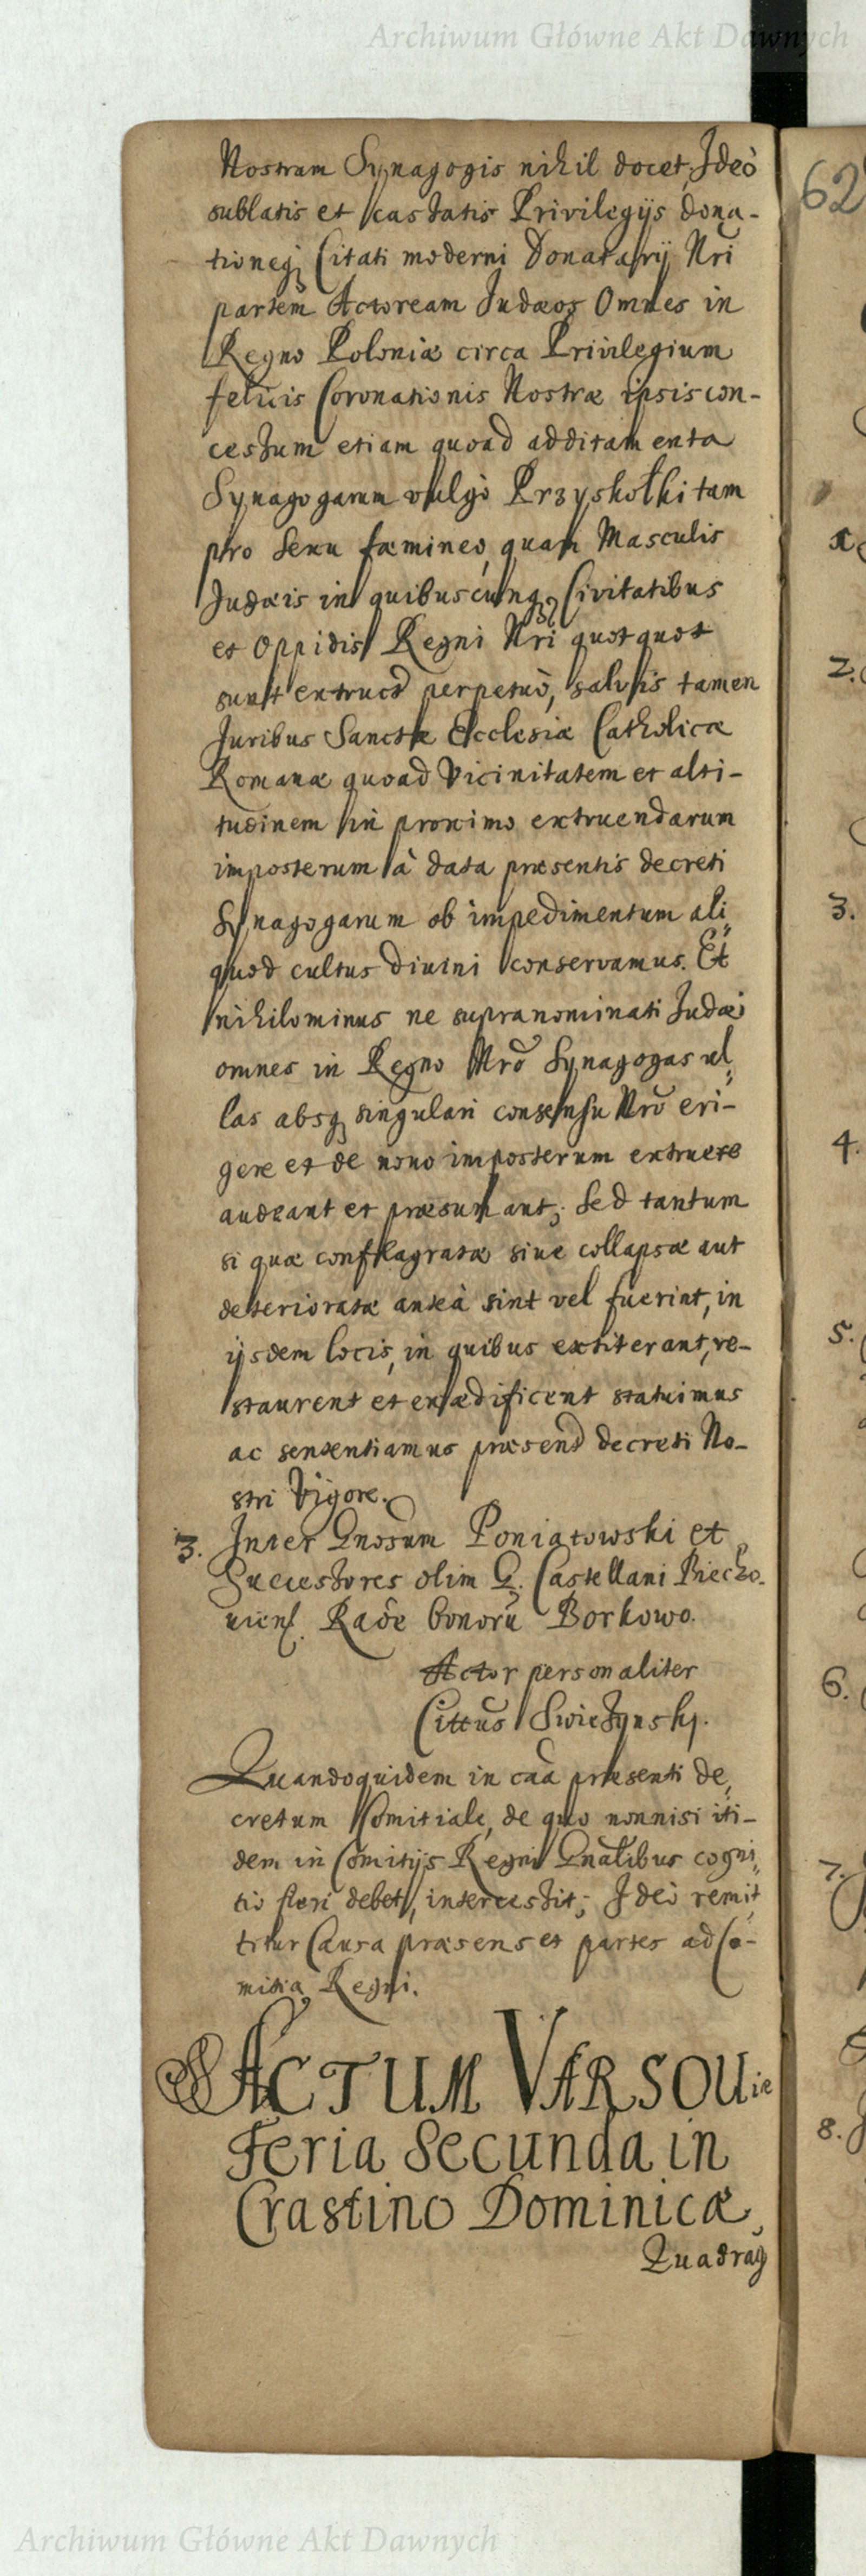 Archiwum Główne Akt Dawnych
Nostram Synagogis nihil docet, Ideò
sublatis et cassatis Privilegijs dona-
tioneq; Citati moderni Donatarij Nri
partem Actoream Judæos Omnes in
Regno Poloniæ circa Privilegium
felicis Coronationis Nostræ ipsis con-
cessum etiam quoad additamenta
Synagogarum vulgò Przyskołki tam
pro sexu fæmineo, quam Masculis
Judæis in quibuscunq; Civitatibus
et Oppidis Regni Nri quotquot
sunt extruct perpetuò, salvis tamen
Juribus Sanctæ Ecclesiæ Catholicæ
Romanæ quoad Vicinitatem et alti-
tudinem in proximo extruendarum
imposterum à data præsentis decreti
Synagogarum ob impedimentum ali
quod cultus Divini conservamus. Et
nihilominus ne supranominati Judæi
omnes in Regno Nrō Synagogas ul
las absq; singulari consensu Nrō eri-
gere et de novo imposterum extruere
audeant et præsumant; Sed tantum
si quæ conflagratæ sive collapsæ aut
deterioratæ anteà sint vel fuerint, in
ijsdem locis, in quibus extiterant, re-
staurent et exædificent statuimus
ac sententiamus præsent decreti No-
stri Vigore.
3. Inter Gnosum Poniatowski et
Successores olim G. Castellani Biecho-
viens. Raōe bonorū Borkowo.
Actor personaliter
Cittus Swieżynski.
Quandoquidem in caā præsenti de
cretum Comitiale, de quo nonnisi iti-
dem in Comitijs Regni Gnālibus cogni
tio fieri debet, intercessit; Ideò remit
titur Causa præsens et partes ad Co-
mitia Regni.
ACTUM VARSOViæ
Feria Secunda in
Crastino Dominicæ
Quadrag
62
2.
3.
4.
5.
6.
7.
8.
Archiwum Główne Akt Dawnych